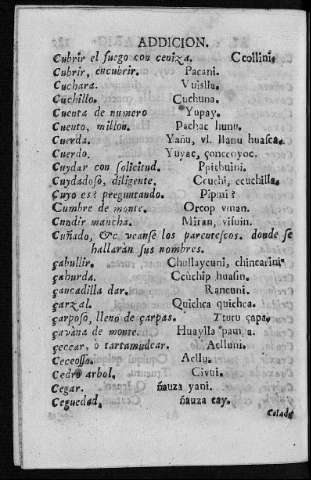 ADDICION.
Cubrir el fuego con ceniza. Ccollini
Cubrir, encubrir. Pacani.
Cuchara. Vuisllu.
Cuchillo. Cuchuna.
Cuenta de numero Yupay.
Cuento, millon. Pachac hunu.
Cuerda. Yanu, vl. llanu huasca.
Cuerdo. Yuyac, çonccoyoc.
Cuydar con solicitud. Pputihuini.
Cuydadoso, diligente. Ccuchi, ccuchilla.
Cuyo es? preguntando. Pipmi?
Cumbre de monte. Orcop vman.
Cundir mancha. Miran, visuin.
Cuñado, &c. veanse los parentescos. donde se
hallaràn sus nombres.
çabullir. Chullaycuni, chincarini
çahurda. Ccuchip huasin.
çancadilla dar. Rancuni.
çarzal. Quichca quichca.
çarposo, lleno de çarpas. Tturu çapa.
çavana de monte. Huaylla pampa.
çeccar, ò tartamudear. Aclluni.
Ceceoso. Acllu.
Cedro arbol. Civui.
Cegar. ñauza yani.
Ceguedad. ñauza cay.
Celada